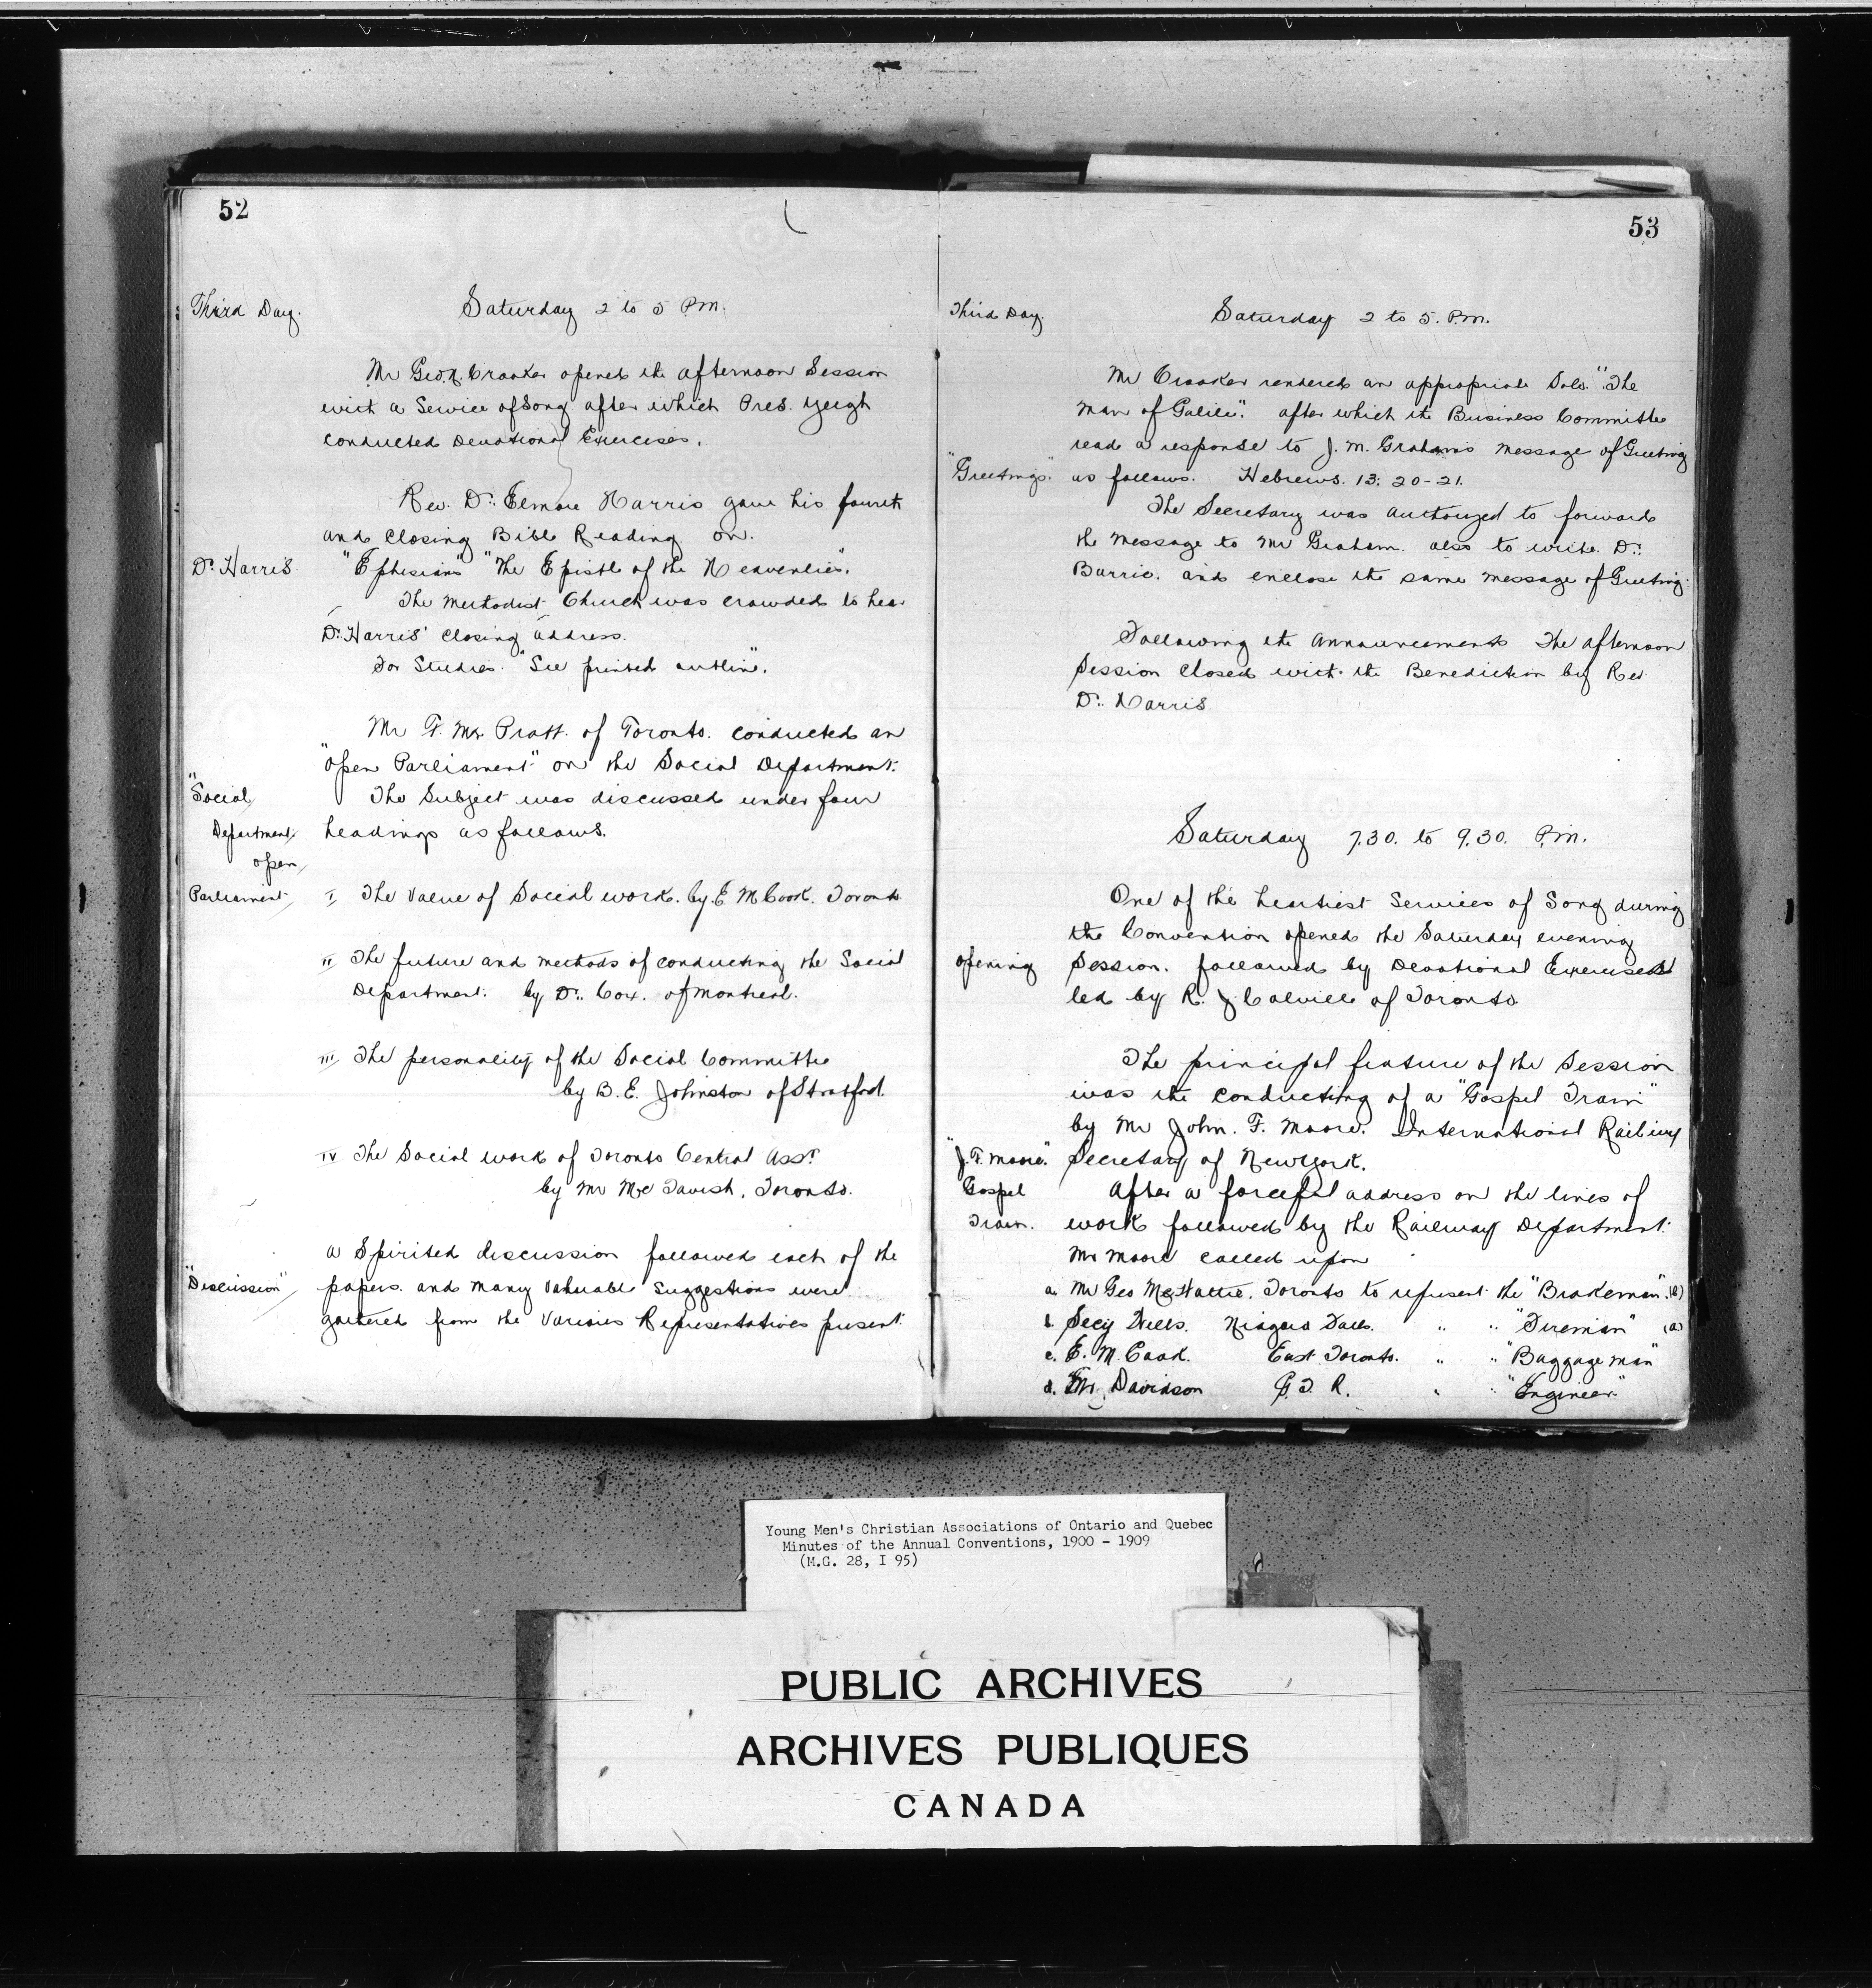 52
Third Day.
Saturday 2 to 5 P.M.
Mr Geo. N. Crooker opened the afternoon Session
with a Service of Song after which Pres. Yeigh
conducted Devotional Exercises.
Rev. Dr. Elmore Harris gave his fourth
and Closing Bible Reading on.
Dr. Harris.
"Ephesians" "The Epistle of the Heavenlies".
The Methodist Church was crowded to hear
Dr. Harris' closing address.
For Studies. "See printed outline".
Mr F. M. Pratt. of Toronto. conducted an
"open Parliament" on the Social Department.
"Social
Department,
open
Parliament
The Subject was discussed under four
headings as follows.
I The Value of Social work. by E. M Cook. Toronto
II The future and methods of conducting the Social
Department. by Dr. Cox. of Montreal.
III The personality of the Social Committee
by B. E. Johnston of Stratford.
IV The Social work of Toronto Central Assn.
by Mr McTavish, Toronto.
"Discussion"
a Spirited discussion followed each of the
papers. and many valuable suggestions were
gathered from the Various Representatives present.
53
Third Day.
Saturday 2 to 5. P.M.
Mr Crooker rendered an appropriate Solo. "The
Man of Galilee". after which the Business Committee
read a response to J. M. Graham's message of Greeting
"Greetings."
as follows. Hebrews. 13: 20-21.
The Secretary was Authorized to forward
the Message to Mr Graham. also to write Dr.
Barrie. and enclose the same message of Greeting.
Following the Announcements The afternoon
Session Closed with the Benediction by Rev
Dr. Harris
Saturday 7.30. to 9.30. P.M.
One of the heartiest Services of Song during
the Convention opened the Saturday evening
opening
Session. followed by Devotional Exercises
led by R. J. Colville of Toronto
The principal feature of the Session
was the conducting of a "Gospel Train"
by Mr John. F. Moore. International Railway
"J. F. Moore."
Gospel
Train.
Secretary of New York.
After a forceful address on the lines of
work followed by the Railway Department.
Mr Moore called upon
a. Mr Geo McHattie. Toronto to represent the "Brakeman". (b)
b. Secy Wells. Niagara Falls. " " "Fireman" (a)
c. E. M. Cook. East Toronto. " " "Baggage man"
d. Mr. Davidson G. T. R. " " "Engineer"
Young Men's Christian Associations of Ontario and Quebec
Minutes of the Annual Conventions, 1900 - 1909
(M.G. 28, I 95)
PUBLIC ARCHIVES
ARCHIVES PUBLIQUES
CANADA